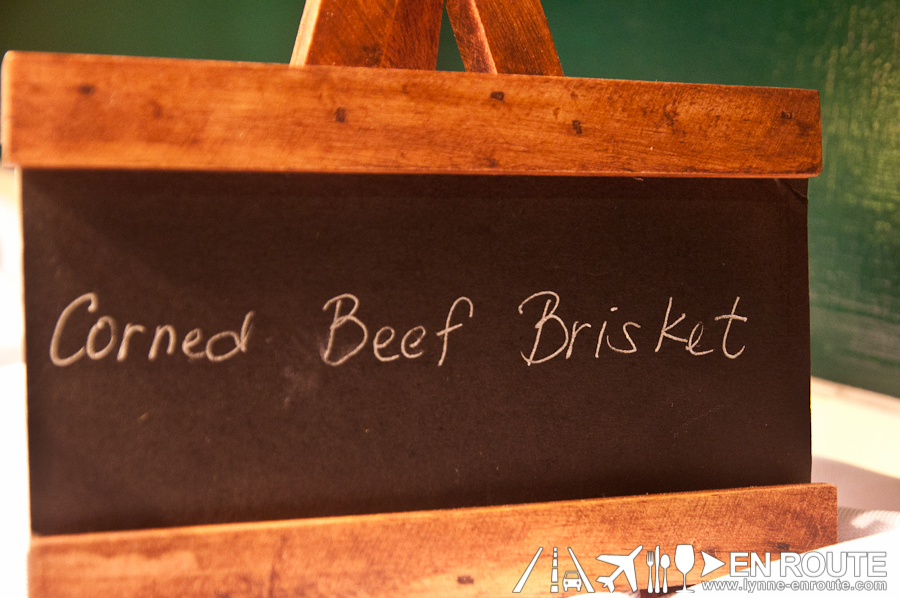 Corned Beef Brisket
EN ROUTE
www.lynne-enroute.com